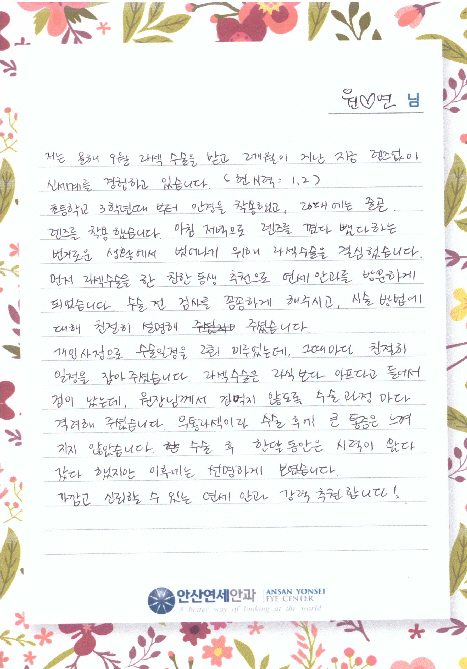 원♡연 님
저는 올해 9월 라섹 수술을 받고 2개월이 지난 지금 렌즈없이
신세계를 경험하고 있습니다. (현 시력 : 1.2)
초등학교 3학년때 부터 안경을 착용했고, 20대에는 줄곧
렌즈를 착용했습니다. 아침 저녁으로 렌즈를 꼈다 뺐다하는
번거로운 생활에서 벗어나기 위해 라섹수술을 결심했습니다.
먼저 라섹수술을 한 친한 동생 추천으로 연세안과를 방문하게
되었습니다. 수술 전 검사를 꼼꼼하게 해주시고, 시술 방법에
대해 친절히 설명해 주셨습니다.
개인사정으로 수술일정을 2회 미루었는데, 그때마다 친절히
일정을 잡아주셨습니다. 라섹수술은 라식보다 아프다고 들어서
겁이 났는데, 원장님께서 겁먹지 않도록 수술과정 마다
격려해 주셨습니다. 무통라섹이라 수술 후기 큰 통증은 느껴
지지 않았습니다. 수술 후 한달 동안은 시력이 왔다
갔다 했지만 이후에는 선명하게 보였습니다.
가깝고 신뢰할 수 있는 연세 안과 강력 추천합니다!
안산연세안과 ANSAN YONSEI EYE CENTER
A better way of looking at the world